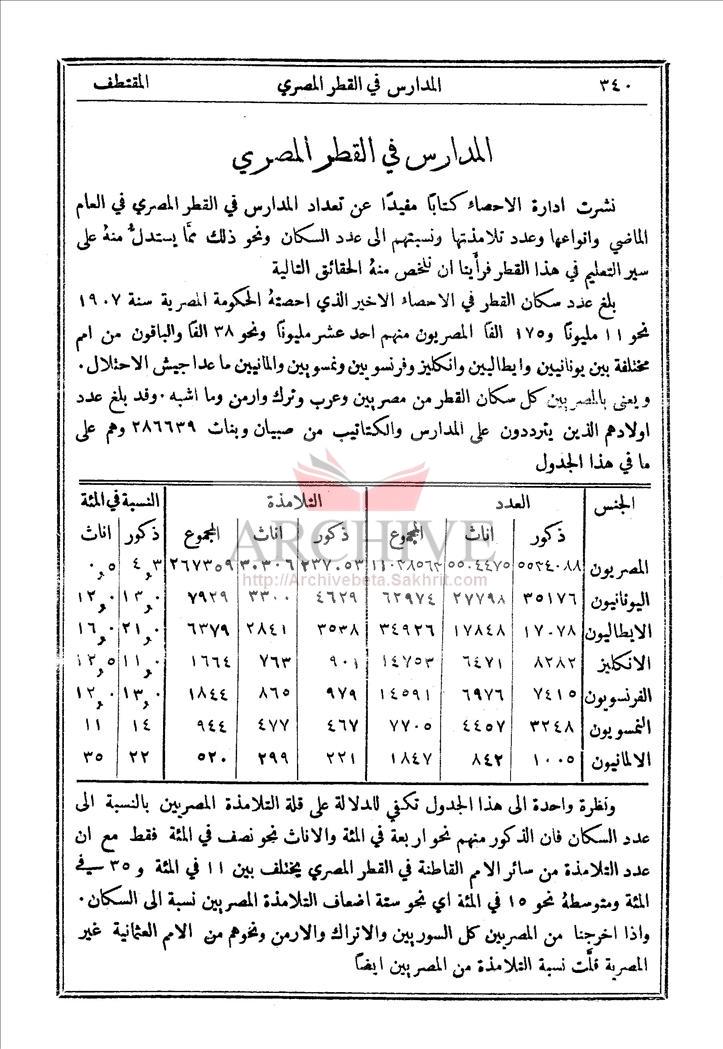 ٣٤٠ المدارس في القطر المصري المقتطف
المدارس في القطر المصري
نشرت ادارة الاحصاء كتابًا مفيدًا عن تعداد المدارس في القطر المصري في العام
الماضي وانواعها وعدد تلامذتها ونسبتهم الى عدد السكان ونحو ذلك ممَّا يستدلُّ منهُ على
سير التعليم في هذا القطر فرأَينا ان نلخص منهُ الحقائق التالية
بلغ عدد سكان القطر في الاحصاء الاخير الذي احصتهُ الحكومة المصرية سنة ١٩٠٧
نحو ١١ مليونًا و١٧٥ الفًا المصريون منهم احد عشر مليونًا ونحو ٣٨ الفًا والباقون من امم
مختلفة بين يونانيين وايطاليين وانكليز وفرنسويين ونمسويين والمانيين ما عدا جيش الاحتلال.
ويعنى بالمصريين كل سكان القطر من مصريين وعرب وترك وارمن وما اشبه. وقد بلغ عدد
اولادهم الذين يترددون على المدارس والكتاتيب من صبيان وبنات ٢٨٦٦٣٩ وهم على
ما في هذا الجدول
الجنس العدد التلامذة النسبة في المئة
ذكور اناث المجموع ذكور اناث المجموع ذكور اناث
المصريون ٥٥٣٤٠٨٨ ٥٥٠٤٤٧٥ ١١٠٣٨٥٦٣ ٢٣٧٠٥٣ ٣٠٣٠٦ ٢٦٧٣٥٩ ٤٫٣ ٠٫٥
اليونانيون ٣٥١٧٦ ٢٧٧٩٨ ٦٢٩٧٤ ٤٦٢٩ ٣٣٠٠ ٧٩٢٩ ١٣٫٠ ١٢٫٠
الايطاليون ١٧٠٧٨ ١٧٨٤٨ ٣٤٩٢٦ ٣٥٣٨ ٢٨٤١ ٦٣٧٩ ٢١٫٠ ١٦٫٠
الانكليز ٨٢٨٢ ٦٤٧١ ١٤٧٥٣ ٩٠١ ٧٦٣ ١٦٦٤ ١١٫٠ ١٢٫٥
الفرنسويون ٧٤١٥ ٦٩٧٦ ١٤٥٩١ ٩٧٩ ٨٦٥ ١٨٤٤ ١٣٫٠ ١٢٫٠
النمسويون ٣٢٤٨ ٤٤٥٧ ٧٧٠٥ ٤٦٧ ٤٧٧ ٩٤٤ ١٤ ١١
الالمانيون ١٠٠٥ ٨٤٢ ١٨٤٧ ٢٢١ ٢٩٩ ٥٢٠ ٢٢ ٣٥
ARCHIVE
http://Archivebeta.Sakhrit.com
ونظرة واحدة الى هذا الجدول تكفي للدلالة على قلة التلامذة المصريين بالنسبة الى
عدد السكان فان الذكور منهم نحو اربعة في المئة والاناث نحو نصف في المئة فقط مع ان
عدد التلامذة من سائر الامم القاطنة في القطر المصري يختلف بين ١١ في المئة و٣٥ في
المئة ومتوسطهُ نحو ١٥ في المئة اي نحو ستة اضعاف التلامذة المصريين نسبة الى السكان.
واذا اخرجنا من المصريين كل السوريين والاتراك والارمن ونحوهم من الامم العثمانية غير
المصرية قلَّت نسبة التلامذة من المصريين ايضًا